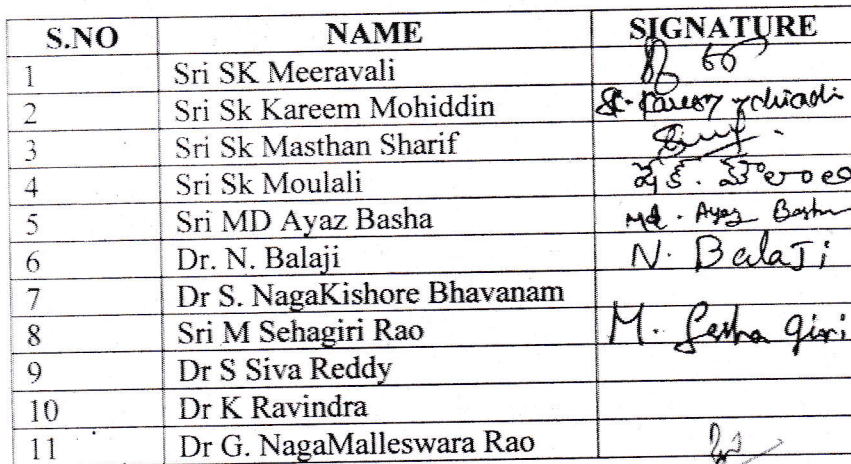 S.NO NAME SIGNATURE
1 Sri SK Meeravali
2 Sri Sk Kareem Mohiddin Sk.
3 Sri Sk Masthan Sharif
4 Sri Sk Moulali
5 Sri MD Ayaz Basha Md. Ayaz Basha
6 Dr. N. Balaji N. BalaJi
7 Dr S. NagaKishore Bhavanam
8 Sri M Sehagiri Rao M. Sesha giri
9 Dr S Siva Reddy
10 Dr K Ravindra
11 Dr G. NagaMalleswara Rao